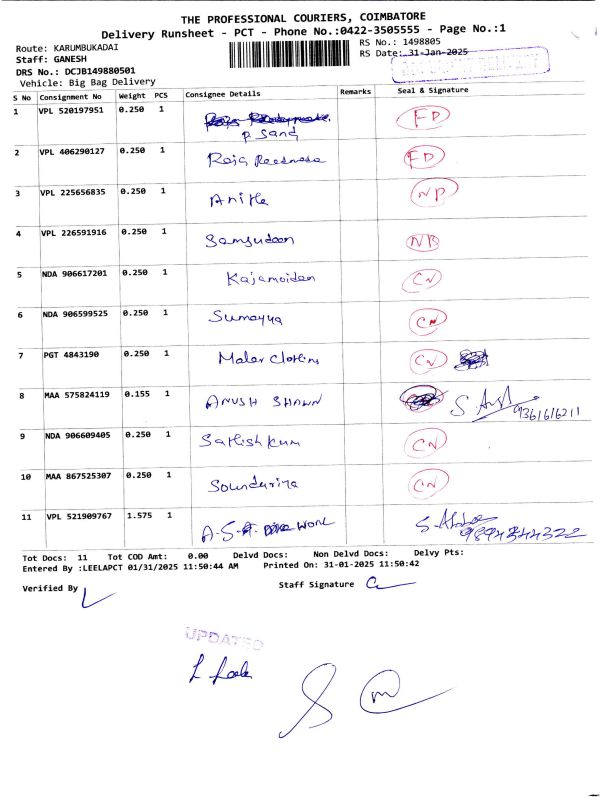 THE PROFESSIONAL COURIERS, COIMBATORE
Delivery Runsheet - PCT - Phone No.:0422-3505555 - Page No.:1
Route: KARUMBUKADAI
RS No.: 1498805
Staff: GANESH
RS Date: 31-Jan-2025
DRS No.: DCJB149880501
Vehicle: Big Bag Delivery
S No Consignment No Weight PCS Consignee Details Remarks Seal & Signature
1 VPL 520197951 0.250 1 P Sand FD
2 VPL 406290127 0.250 1 Raja FD
3 VPL 225656835 0.250 1 Anitha NP
4 VPL 226591916 0.250 1 Samsudeen NP
5 NDA 906617201 0.250 1 Kajamoiden CN
6 NDA 906599525 0.250 1 Sumayya CN
7 PGT 4843190 0.250 1 Malar Clothins CN
8 MAA 575824119 0.155 1 ANUSH SHAWN 9361616211
9 NDA 906609405 0.250 1 Sathish kum CN
10 MAA 867525307 0.250 1 Soundariya CN
11 VPL 521909767 1.575 1 A.S.A. WORK 9894344322
Tot Docs: 11 Tot COD Amt: 0.00 Delvd Docs: Non Delvd Docs: Delvy Pts:
Entered By :LEELAPCT 01/31/2025 11:50:44 AM Printed On: 31-01-2025 11:50:42
Verified By
Staff Signature
UPDATED